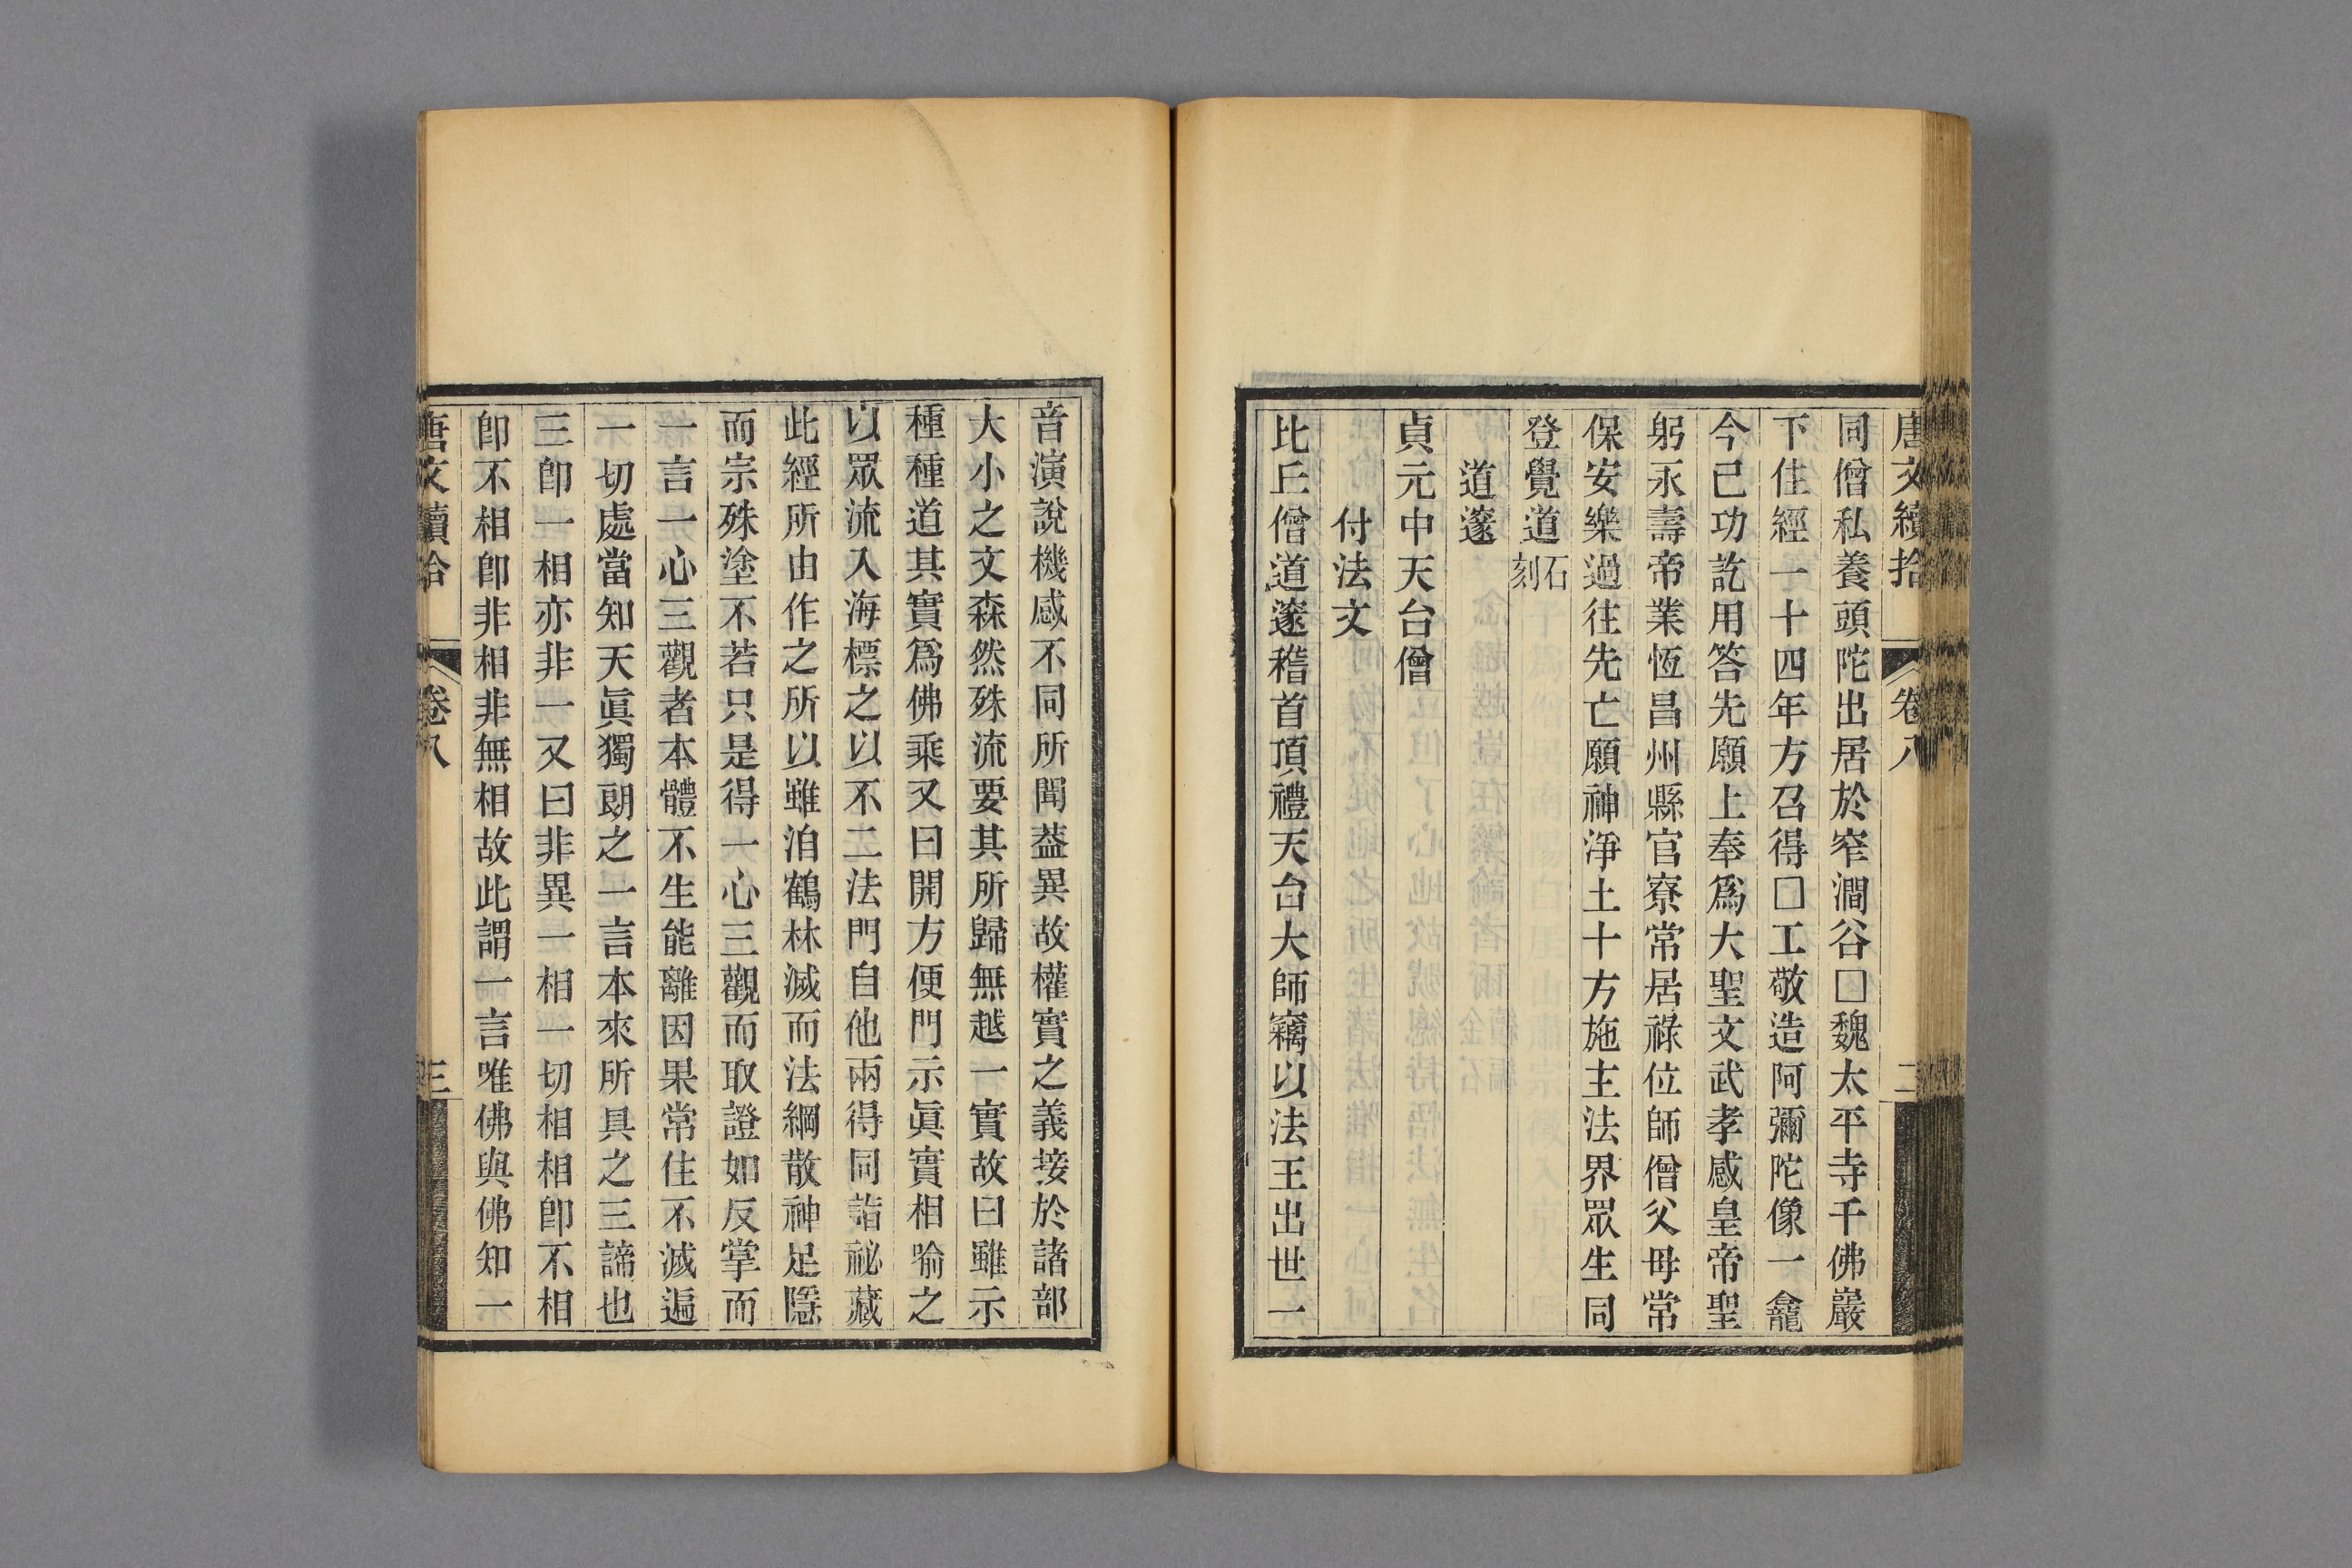 唐文續拾 卷八 二
同僧私養頭陀出居於窄澗谷□魏太平寺千佛巖
下住經一十四年方召得□工敬造阿彌陀像一龕
今已功訖用答先願上奉爲大聖文武孝感皇帝聖
躬永壽帝業恆昌州縣官寮常居祿位師僧父母常
保安樂過往先亡願神淨土十方施主法界眾生同
登覺道石刻
道邃
貞元中天台僧
付法文
比丘僧道邃稽首頂禮天台大師竊以法王出世一
音演說機感不同所聞葢異故權實之義接於諸部
大小之文森然殊流要其所歸無越一實故曰雖示
種種道其實爲佛乘又曰開方便門示眞實相喻之
以眾流入海標之以不二法門自他兩得同詣祕藏
此經所由作之所以雖泊鶴林滅而法綱散神足隱
而宗殊塗不若只是得一心三觀而取證如反掌而
一言一心三觀者本體不生能離因果常住不滅遍
一切處當知天眞獨朗之一言本來所具之三諦也
三卽一相亦非一又曰非異一相一切相相卽不相
卽不相卽非相非無相故此謂一言唯佛與佛知一
唐文續拾 卷八 三